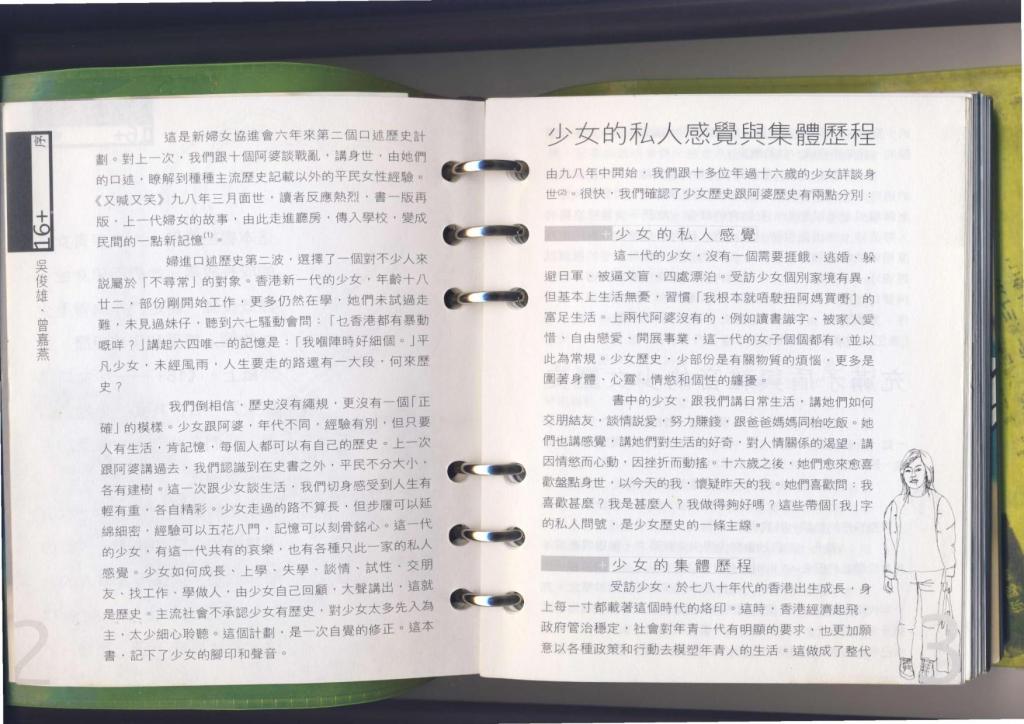 序
16+
吳俊雄、曾嘉燕
這是新婦女協進會六年來第二個口述歷史計
劃。對上一次，我們跟十個阿婆談戰亂，講身世，由她們
的口述，瞭解到種種主流歷史記載以外的平民女性經驗。
《又喊又笑》九八年三月面世，讀者反應熱烈，書一版再
版，上一代婦女的故事，由此走進廳房，傳入學校，變成
民間的一點新記憶(1)。
婦進口述歷史第二波，選擇了一個對不少人來
說屬於「不尋常」的對象。香港新一代的少女，年齡十八
廿二，部份剛開始工作，更多仍然在學，她們未試過走
難，未見過妹仔，聽到六七騷動會問：「乜香港都有暴動
嘅咩？」講起六四唯一的記憶是：「我嗰陣時好細個。」平
凡少女，未經風雨，人生要走的路還有一大段，何來歷
史？
我們倒相信，歷史沒有繩規，更沒有一個「正
確」的模樣。少女跟阿婆，年代不同，經驗有別，但只要
人有生活，肯記憶，每個人都可以有自己的歷史。上一次
跟阿婆講過去，我們認識到在史書之外，平民不分大小，
各有建樹。這一次跟少女談生活，我們切身感受到人生有
輕有重，各自精彩。少女走過的路不算長，但步履可以延
綿細密，經驗可以五花八門，記憶可以刻骨銘心。這一代
的少女，有這一代共有的哀樂，也有各種只此一家的私人
感覺。少女如何成長、上學、失學、談情、試性、交朋
友、找工作、學做人，由少女自己回顧，大聲講出，這就
是歷史。主流社會不承認少女有歷史，對少女太多先入為
主，太少細心聆聽。這個計劃，是一次自覺的修正。這本
書，記下了少女的腳印和聲音。
2
少女的私人感覺與集體歷程
由九八年中開始，我們跟十多位年過十六歲的少女詳談身
世(2)。很快，我們確認了少女歷史跟阿婆歷史有兩點分別：
+少女的私人感覺
這一代的少女，沒有一個需要捱餓、逃婚、躲
避日軍、被逼文盲、四處漂泊。受訪少女個別家境有異，
但基本上生活無憂，習慣「我根本就唔駛扭阿媽買嘢」的
富足生活。上兩代阿婆沒有的，例如讀書識字、被家人愛
惜、自由戀愛、開展事業，這一代的女子個個都有，並以
此為常規。少女歷史，少部份是有關物質的煩惱，更多是
圍著身體、心靈，情慾和個性的纏擾。
書中的少女，跟我們講日常生活，講她們如何
交朋結友，談情說愛，努力賺錢，跟爸爸媽媽同枱吃飯。她
們也講感覺，講她們對生活的好奇，對人情關係的渴望，講
因情慾而心動，因挫折而動搖。十六歲之後，她們愈來愈喜
歡盤點身世，以今天的我，懷疑昨天的我。她們喜歡問：我
喜歡甚麼？我是甚麼人？我做得夠好嗎？這些帶個「我」字
的私人問號，是少女歷史的一條主線。
+少女的集體歷程
受訪少女，於七八十年代的香港出生成長，身
上每一寸都載著這個時代的烙印。這時，香港經濟起飛，
政府管治穩定，社會對年青一代有明顯的要求，也更加願
意以各種政策和行動去模塑年青人的生活。這做成了整代
3